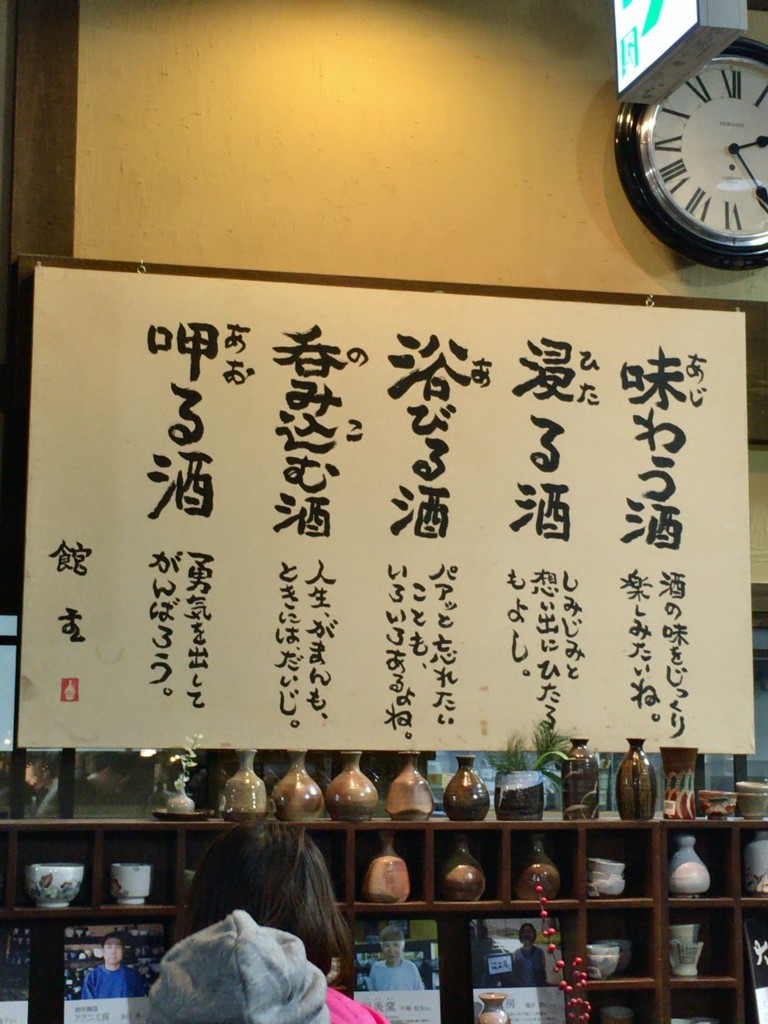 味わう酒
あじ
酒の味をじっくり
楽しみたいね。
浸る酒
ひた
しみじみと
想い出にひたる
もよし。
浴びる酒
あ
パアッと忘れたい
ことも、
いろいろあるよね。
呑み込む酒
の
こ
人生、がまんも、
ときには、だいじ。
呷る酒
あお
勇気を出して
がんばろう。
館主